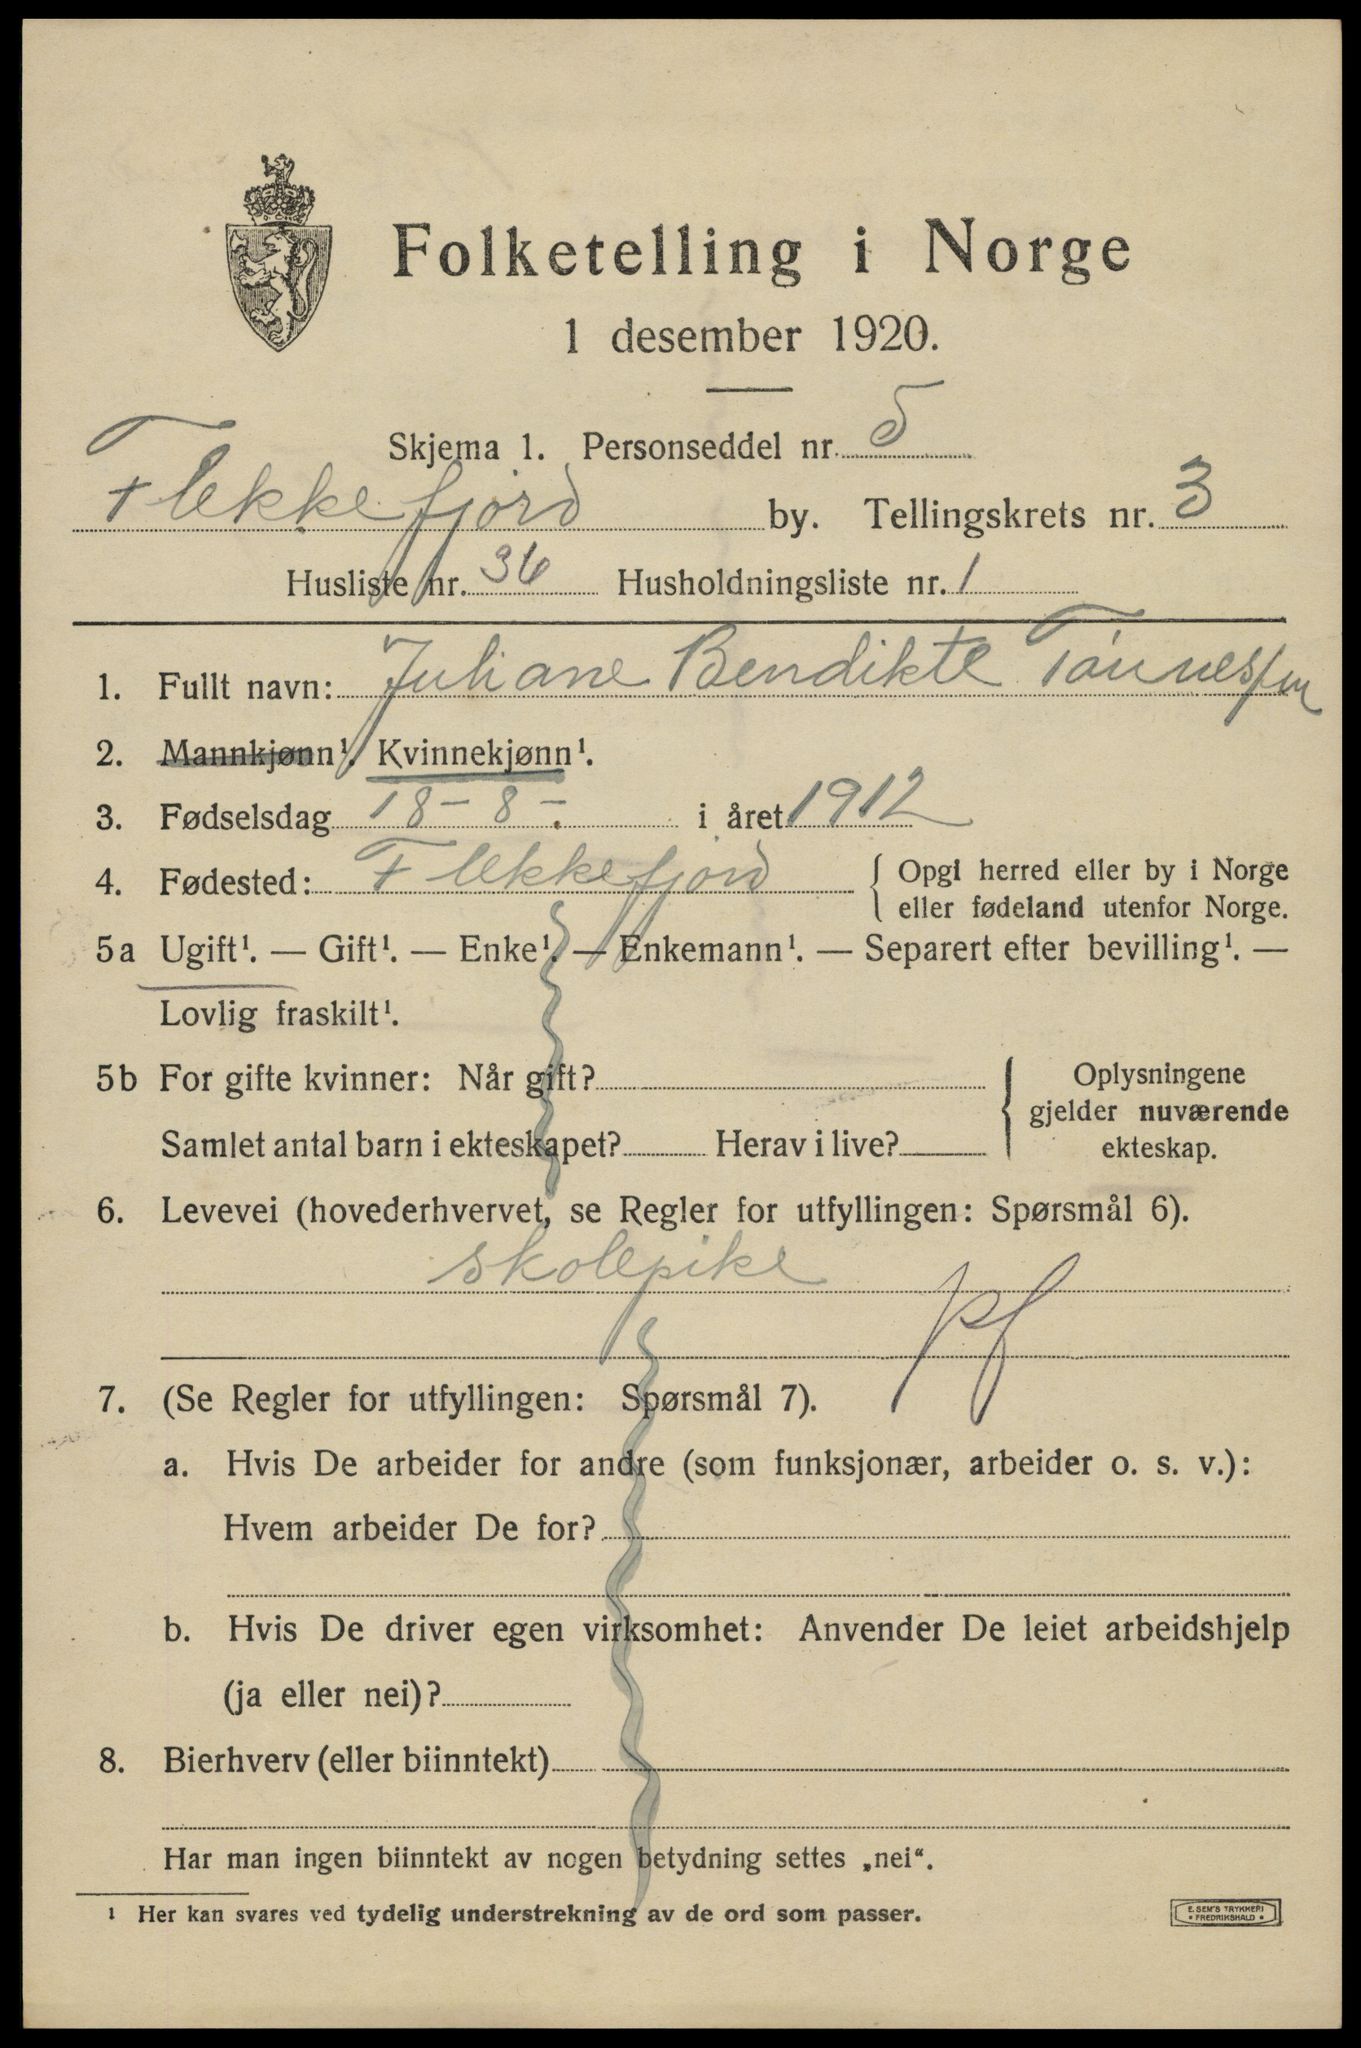 Folketelling i Norge
1 desember 1920.
Skjema 1. Personseddel nr. 5
Flekkefjord by. Tellingskrets nr. 3
Husliste nr. 36 Husholdningsliste nr. 1
1. Fullt navn: Juliane Bendikte Tønnessen
2. Mannkjønn¹. Kvinnekjønn¹.
3. Fødselsdag 18-8-. i året 1912
4. Fødested: Flekkefjord { Opgi herred eller by i Norge
eller fødeland utenfor Norge.
5a Ugift¹. — Gift¹. — Enke¹. — Enkemann¹. — Separert efter bevilling¹. —
Lovlig fraskilt¹.
5b For gifte kvinner: Når gift? { Oplysningene
gjelder nuværende
Samlet antal barn i ekteskapet? Herav i live? ekteskap.
6. Levevei (hovederhvervet, se Regler for utfyllingen: Spørsmål 6).
skolepike
pf
7. (Se Regler for utfyllingen: Spørsmål 7).
a. Hvis De arbeider for andre (som funksjonær, arbeider o. s. v.):
Hvem arbeider De for?
b. Hvis De driver egen virksomhet: Anvender De leiet arbeidshjelp
(ja eller nei)?
8. Bierhverv (eller biinntekt)
Har man ingen biinntekt av nogen betydning settes „nei“.
¹ Her kan svares ved tydelig understrekning av de ord som passer.
E. SEM'S TRYKKERI
• FREDRIKSHALD •